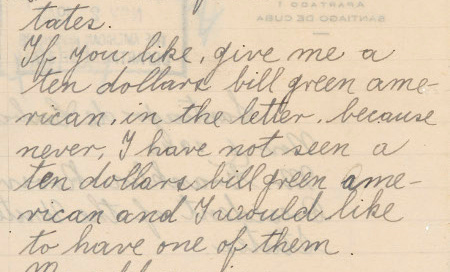 tates.
APARTADO 1
SANTIAGO DE CUBA
If you like, give me a
ten dollars bill green ame-
rican, in the letter, because
never, I have not seen a
ten dollars bill green ame-
rican and I would like
to have one of them.